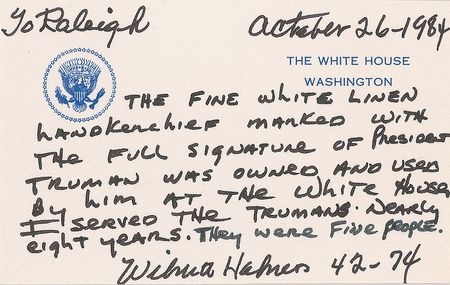 To Raleigh
October 26-1984
THE WHITE HOUSE
WASHINGTON
THE FINE WHITE LINEN
HANDKERCHIEF MARKED WITH
THE FULL SIGNATURE OF PRESIDENT
TRUMAN WAS OWNED AND USED
BY HIM AT THE WHITE HOUSE.
I SERVED THE TRUMANS NEARLY
EIGHT YEARS. THEY WERE FINE PEOPLE.
42-74